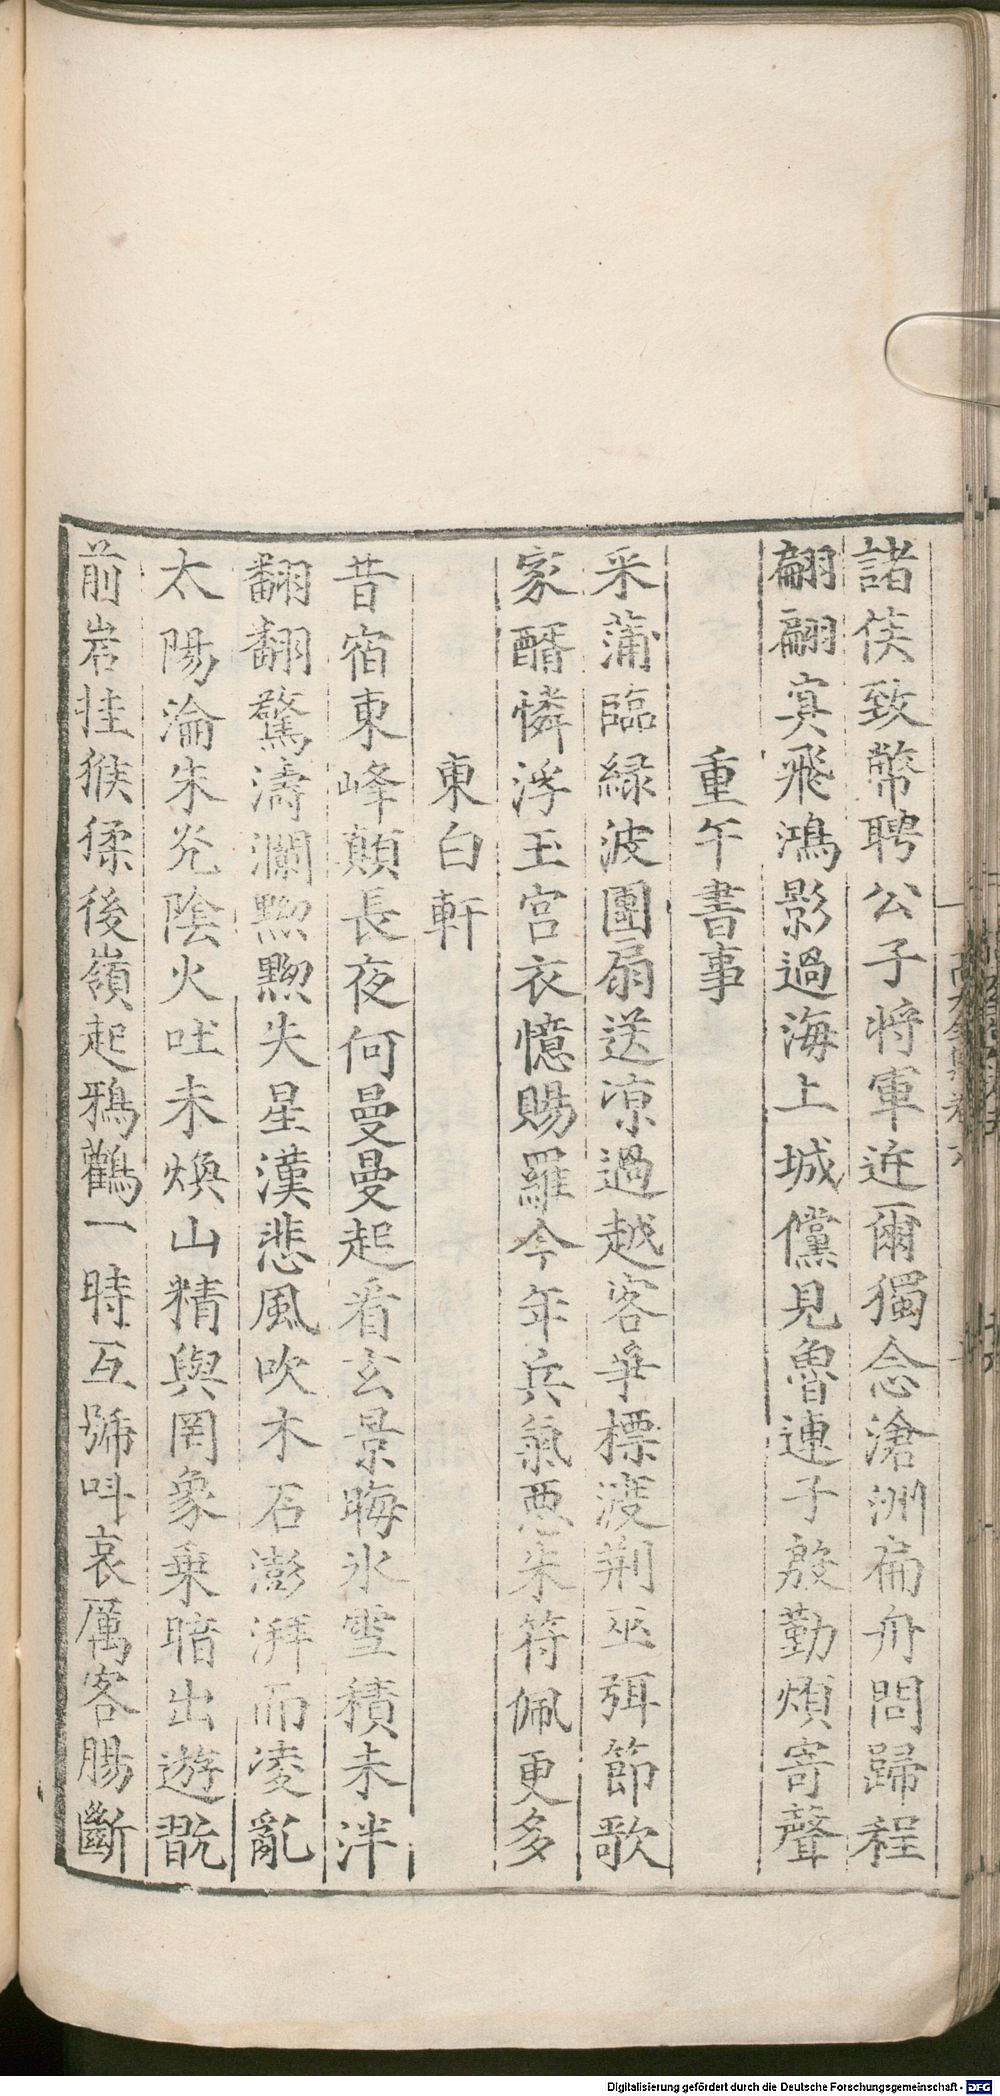 諸侯致幣聘公子將軍近爾獨念滄洲扁舟問歸程
翩翩寞飛鴻影過海上城儻見魯連子殷勤煩寄聲
重午書事
采蒲臨緑波團扇送凉過越客爭標渡荆巫弭節歌
家醑憐浮玉宫衣憶賜羅今年兵氣惡朱符佩更多
東白軒
昔宿東峰顛長夜何曼曼起看玄景晦氷雪積未泮
翻翻驚濤瀾黦黦失星漢悲風吹木石澎湃而凌亂
太陽淪朱光陰火吐未煥山精與罔象乗暗出遊翫
前岩挂猴猱後嶺起鴉鸛一時互號呌哀厲客腸斷
Digitalisierung gefördert durch die Deutsche Forschungsgemeinschaft - DFG